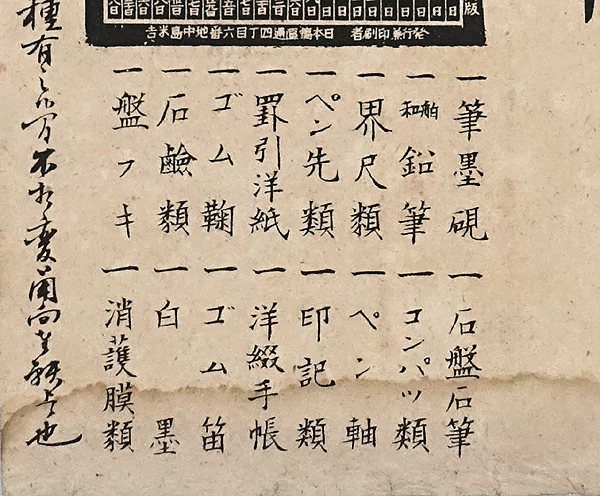 版
発行兼印刷者 日本橋區通四丁目六番地中島米吉
一筆墨硯 一石盤石筆
一舶和鉛筆 一コンパツ類
一界尺類 一ペン軸
一ペン先類 一印記類
一罫引洋紙 一洋綴手帳
一ゴム鞠 一ゴム笛
一石鹼類 一白墨
一盤フキ 一消護膜類
種有之
也